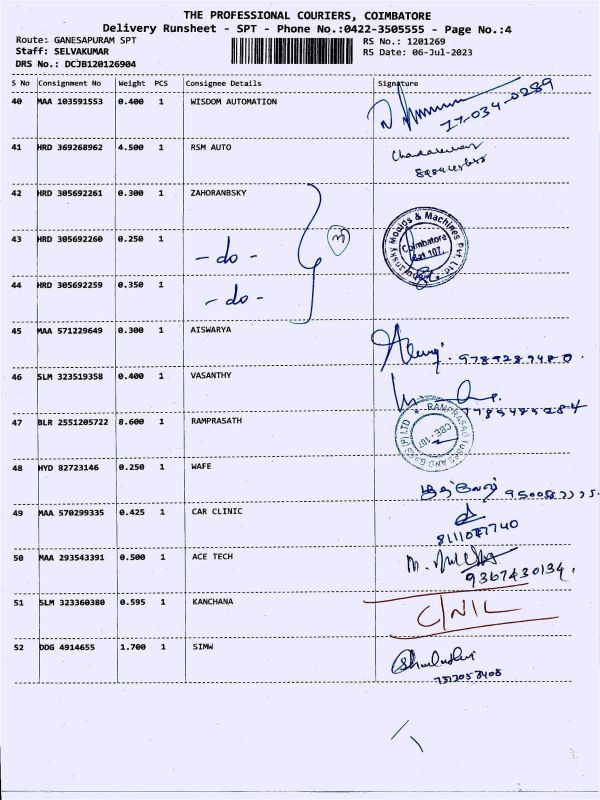 THE PROFESSIONAL COURIERS, COIMBATORE
Delivery Runsheet - SPT - Phone No.:0422-3505555 - Page No.:4
Route: GANESAPURAM SPT RS No.: 1201269
Staff: SELVAKUMAR RS Date: 06-Jul-2023
DRS No.: DCJB120126904
S No Consignment No Weight PCS Consignee Details Signature
40 MAA 103591553 0.400 1 WISDOM AUTOMATION
41 HRD 369268962 4.500 1 RSM AUTO
42 HRD 305692261 0.300 1 ZAHORANBSKY
43 HRD 305692260 0.250 1 - do -
Coimbatore
44 HRD 305692259 0.350 1 - do -
45 MAA 571229649 0.300 1 AISWARYA
46 SLM 323519358 0.400 1 VASANTHY
47 BLR 2551205722 8.600 1 RAMPRASATH
CBE - 107
48 HYD 82723146 0.250 1 WAFE
49 MAA 570299335 0.425 1 CAR CLINIC
8111077740
50 MAA 293543391 0.500 1 ACE TECH
9367430134.
51 SLM 323360380 0.595 1 KANCHANA C/NIL
52 DDG 4914655 1.700 1 SIMW